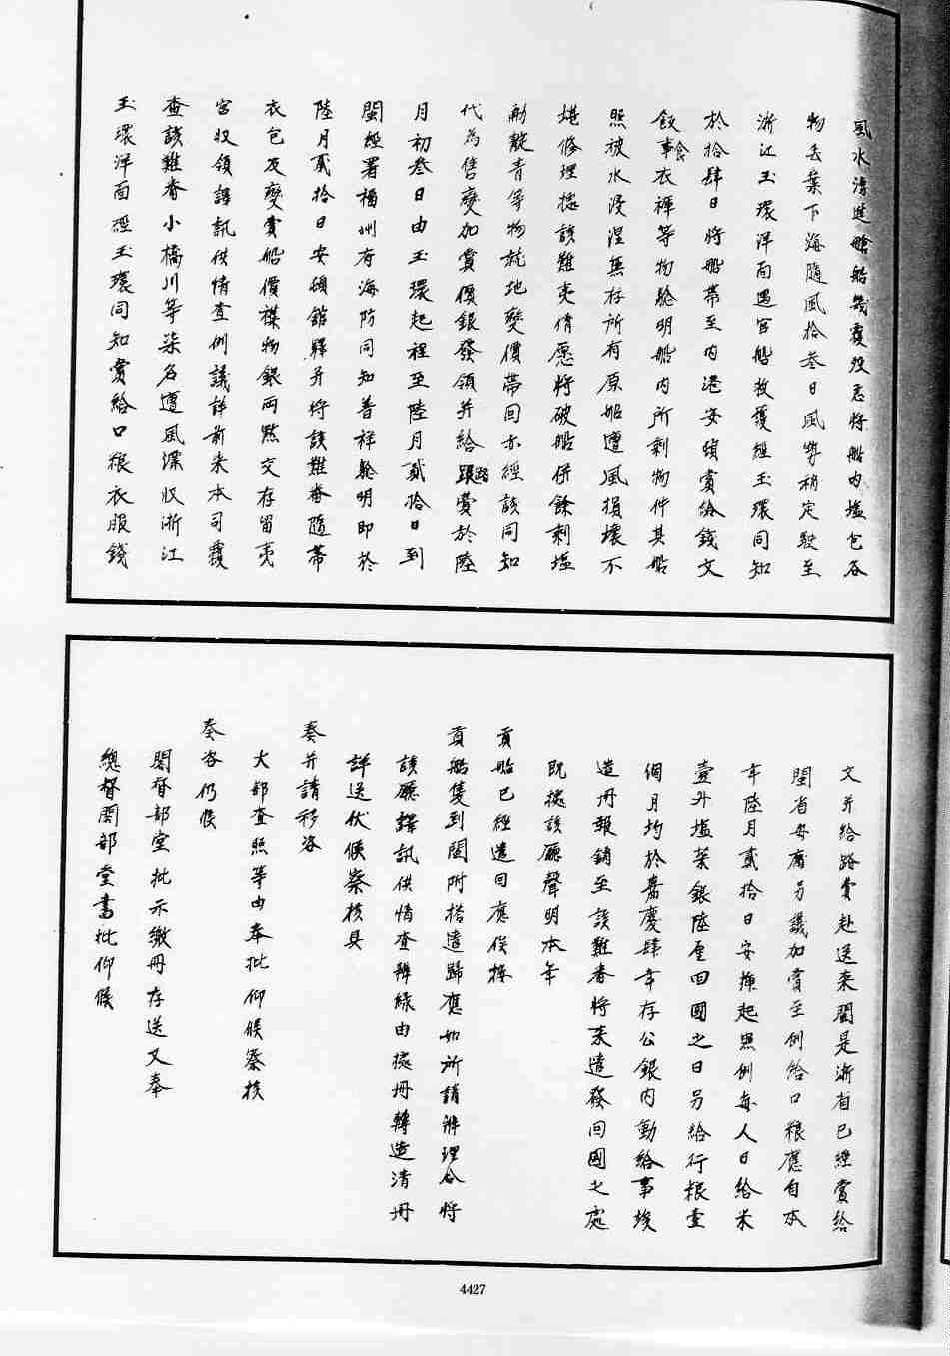 風水漂進艙船幾覆沒急將船內塩包各
物丟棄下海隨風拾叁日風勢稍定駛至
浙江玉環洋面遇官船救護經玉環同知
於拾肆日將船帶至內港安頓賞給錢文
飯食事衣褲等物驗明船內所剩物件其船
照被水浸溼無存所有原船遭風損壞不
堪修理據該難夷情愿將破船併餘剩塩
觔靛青等物就地變價帶回亦經該同知
代為售變加賞價銀發領并給路賞於陸
月初叁日由玉環起程至陸月貳拾日到
閩經署福州府海防同知普祥驗明即於
陸月貳拾日安頓館驛并將該難番隨帶
衣包及變賣船價襍物銀両點交存留夷
官収領譯訊供情查例議詳前來本司覆
查該難番小橋川等柒名遭風漂収浙江
玉環洋面經玉環同知賞給口糧衣服錢
文并給路賞赴送來閩是浙省已經賞給
閩省毋庸另議加賞至例給口糧應自本
年陸月貳拾日安揷起照例每人日給米
壹升塩菜銀陸厘回國之日另給行糧壹
個月均於嘉慶肆年存公銀內動給事竣
造冊報銷至該難番將來遣發回國之處
既據該廳聲明本年
貢船已經遣回應俟接
貢船隻到閩附搭遣歸應如所請辦理合將
該廳譯訊供情查辦緣由據冊轉造清冊
詳送伏候察核具
奏并請移咨
大部查照等由奉批仰候察核
奏咨仍候
閩督部堂批示繳冊存送又奉
總督閩部堂書批仰候
4427